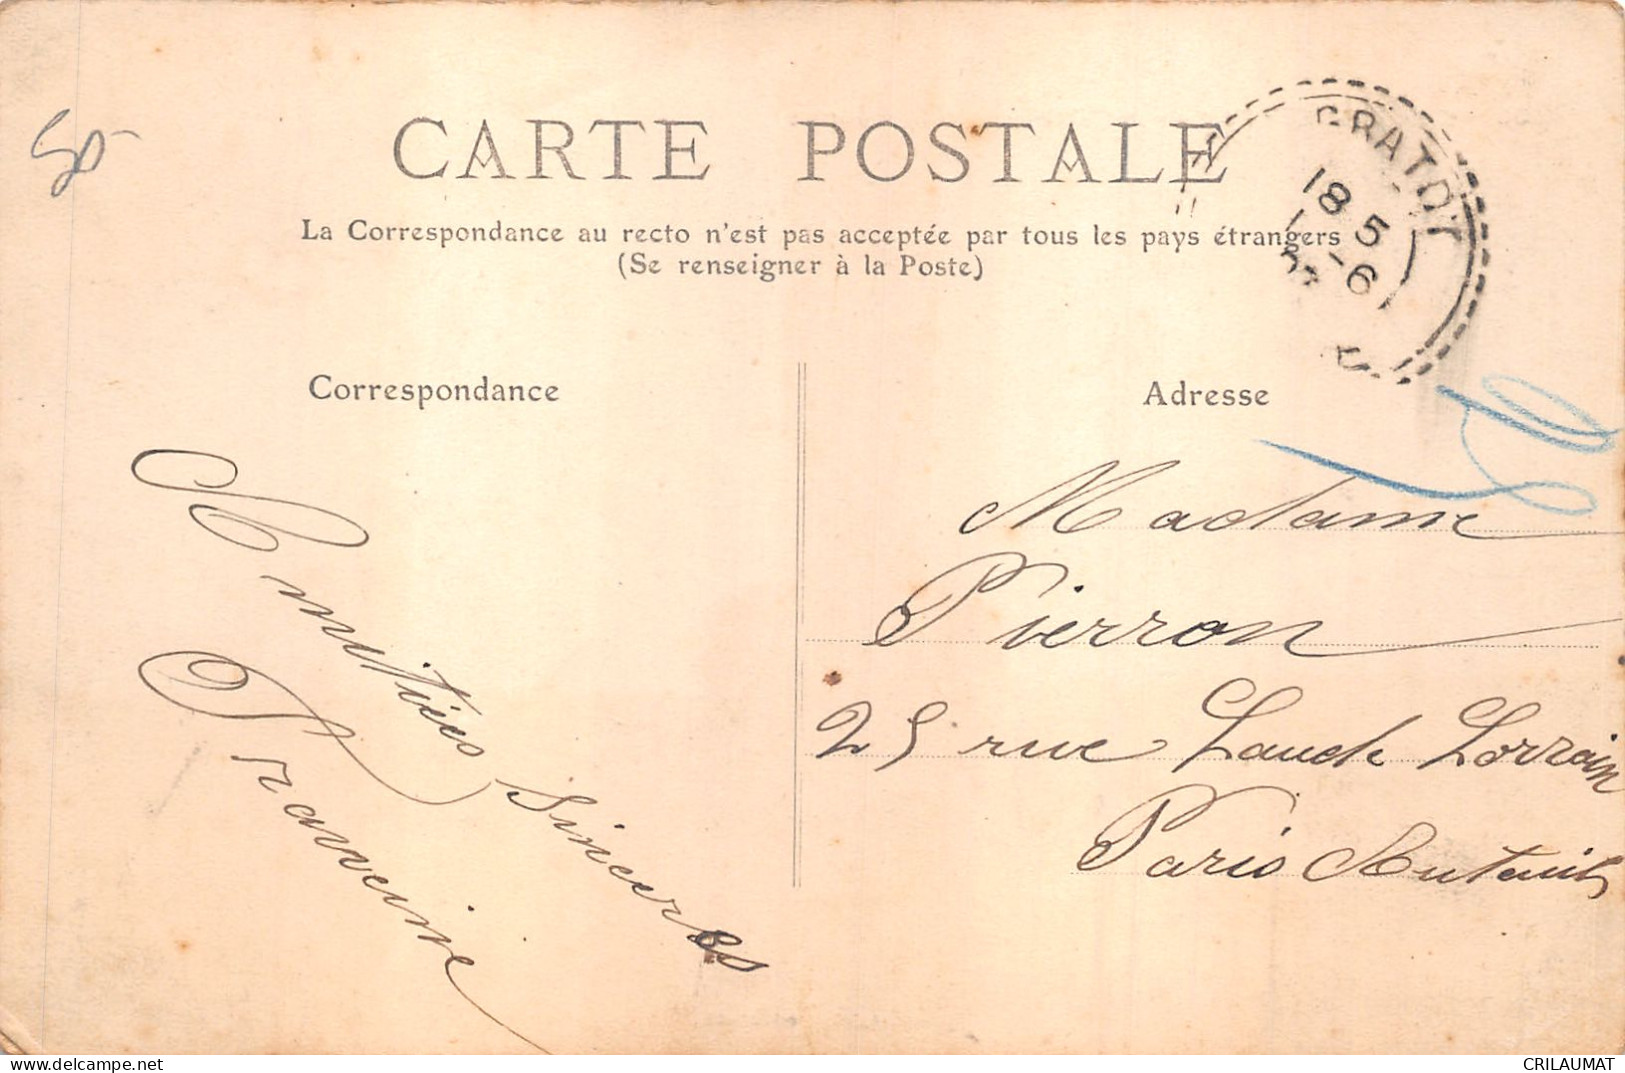 50-
CARTE POSTALE
GRATOT
18 5
-6
La Correspondance au recto n'est pas acceptée par tous les pays étrangers
(Se renseigner à la Poste)
Correspondance
Adresse
Amitiées Sincerès
Madame
Pierron
25 rue Laude Lorrain
Paris Auteuil
CRILAUMAT